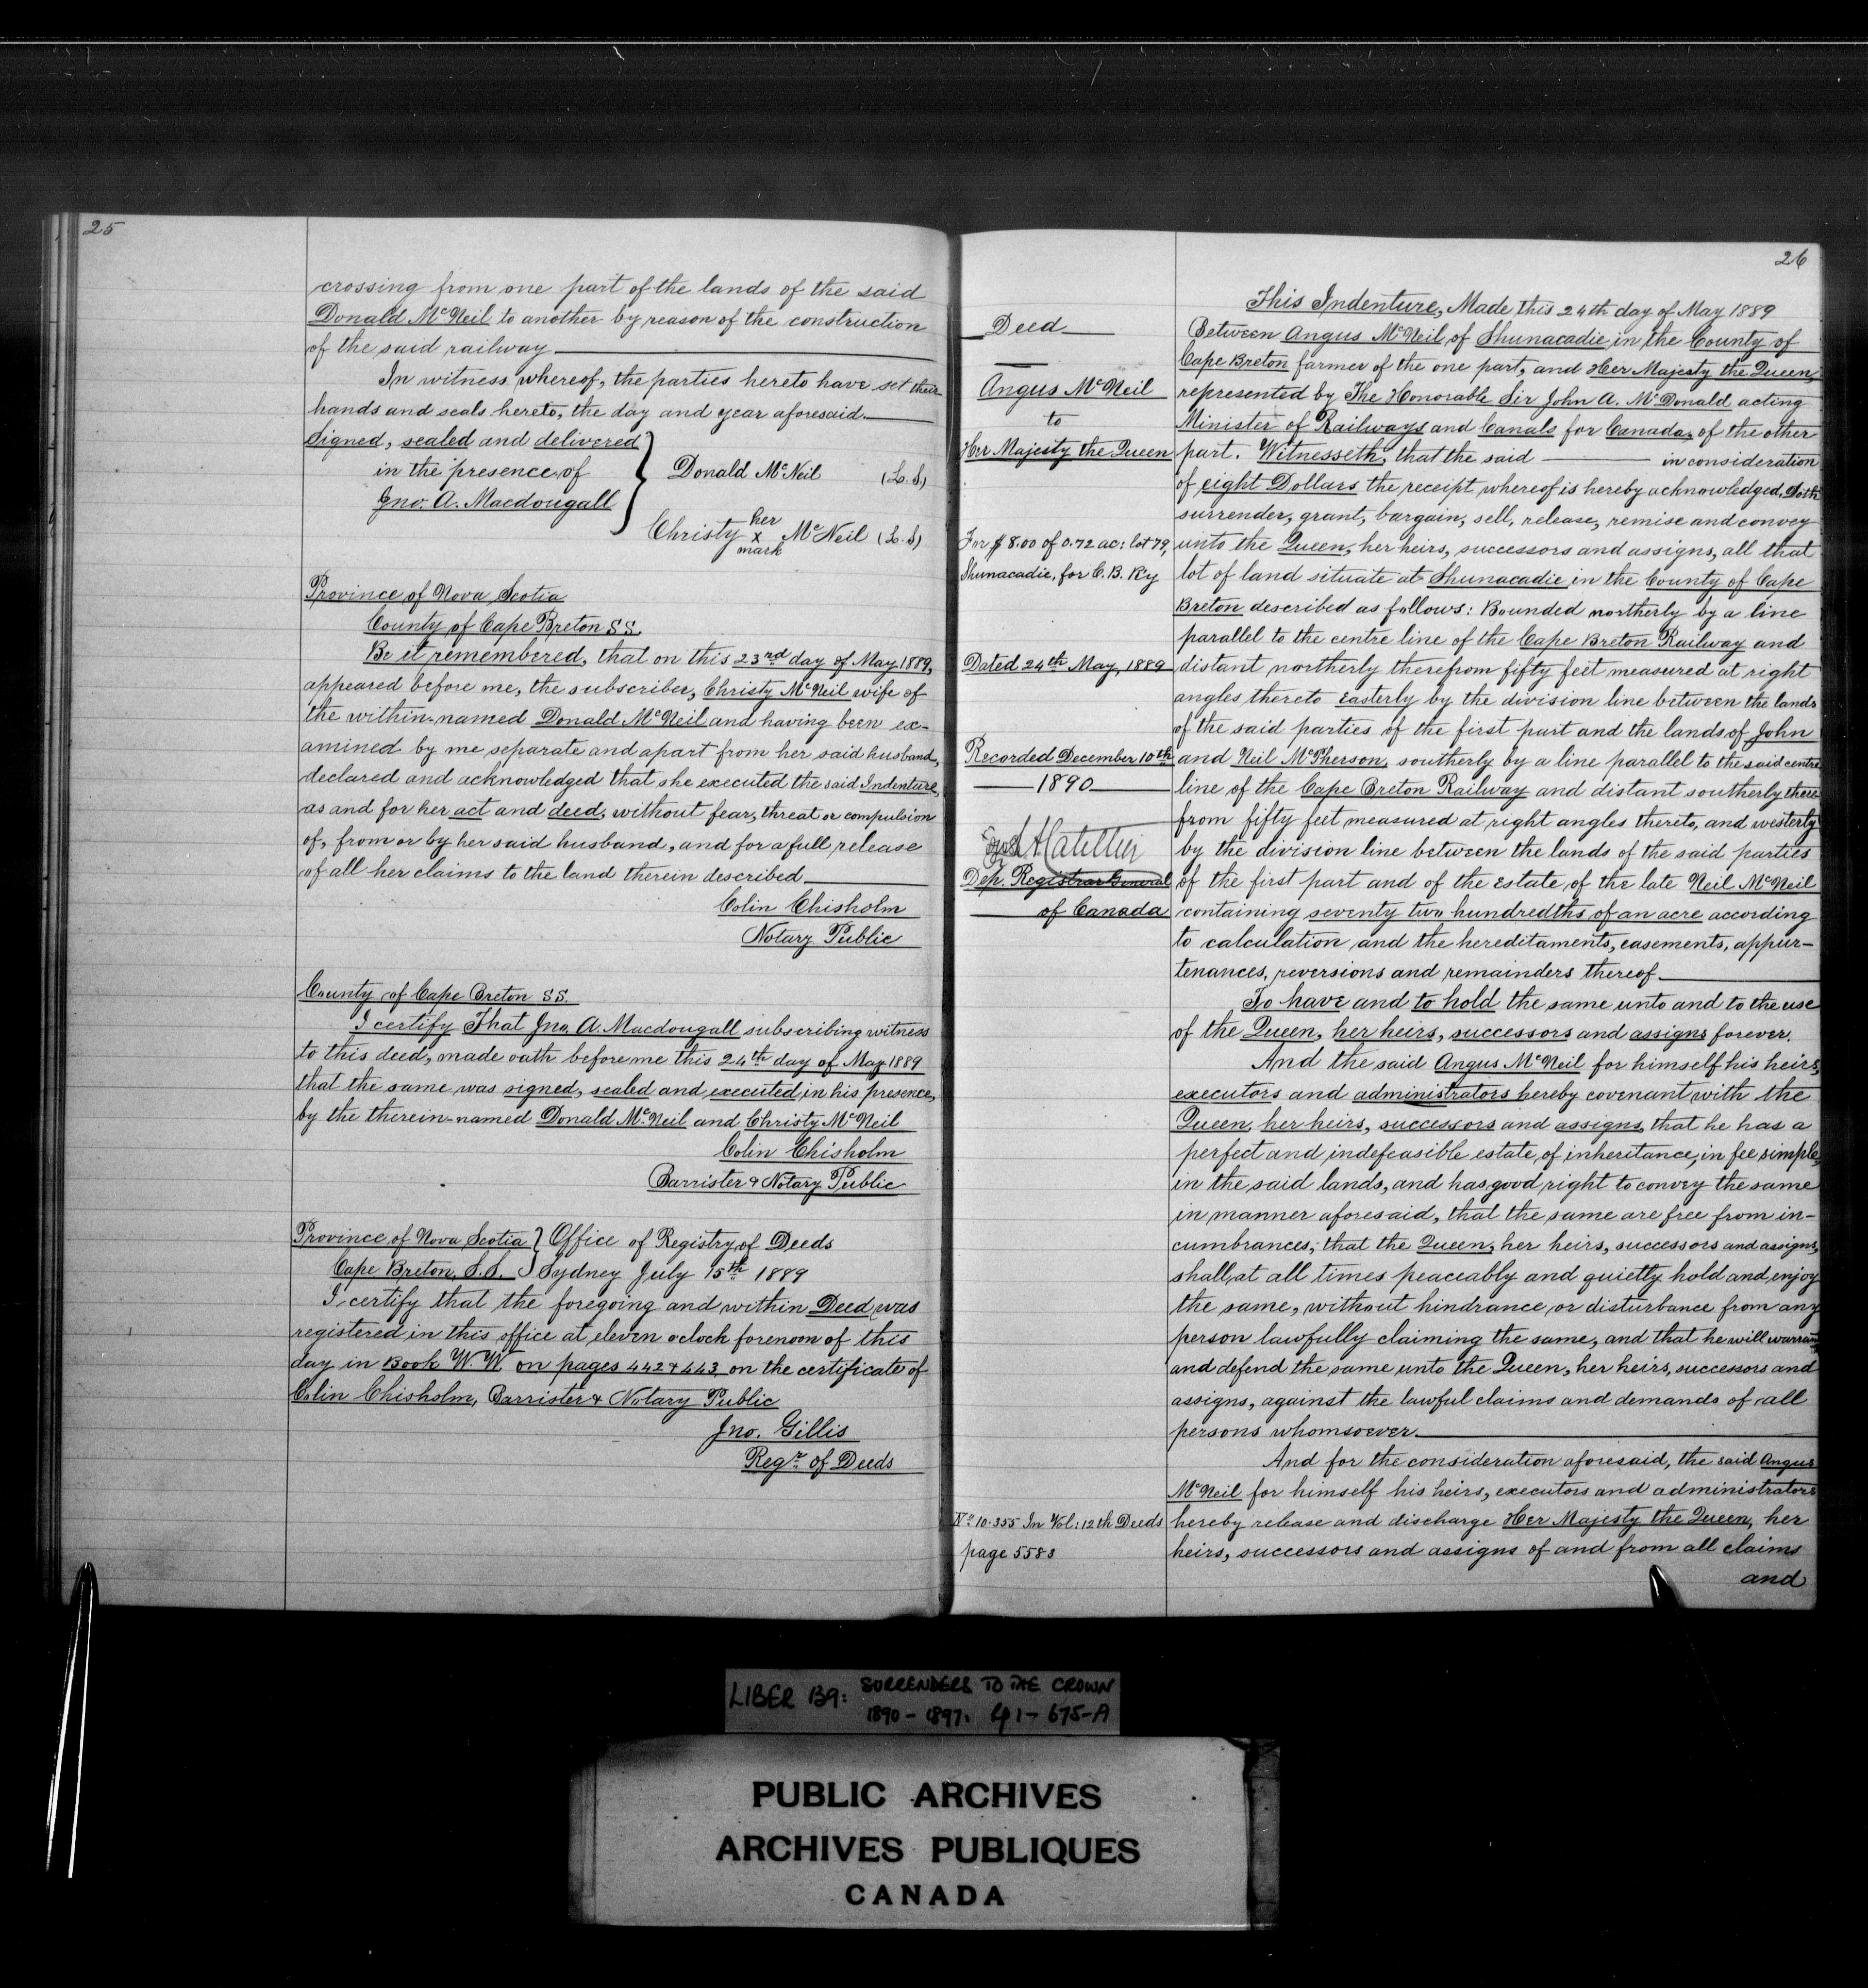 25
crossing from one part of the lands of the said
Donald McNeil to another by reason of the construction
of the said railway
In witness whereof, the parties hereto have set their
hands and seals hereto, the day and year aforesaid.
Signed, sealed and delivered
in the presence of
Jno. A. Macdougall
Donald McNeil (L.S)
Christy her x mark McNeil (L.S)
Province of Nova Scotia
County of Cape Breton SS.
Be it remembered, that on this 23rd day of May 1889,
appeared before me, the subscriber, Christy McNeil wife of
the within-named Donald McNeil and having been ex-
amined by me separate and apart from her said husband,
declared and acknowledged that she executed the said Indenture,
as and for her act and deed, without fear, threat or compulsion
of, from or by her said husband, and for a full release
of all her claims to the land therein described
Colin Chisholm
Notary Public
County of Cape Breton SS.
I certify That Jno. A. Macdougall subscribing witness
to this deed, made oath before me this 24th day of May 1889
that the same was signed, sealed and executed in his presence,
by the therein-named Donald McNeil and Christy McNeil
Colin Chisholm
Barrister & Notary Public
Province of Nova Scotia } Office of Registry of Deeds
Cape Breton, S.S. } Sydney July 15th 1889
I certify that the foregoing and within Deed was
registered in this office at eleven o'clock forenoon of this
day in Book W.W on pages 442 & 443 on the certificate of
Colin Chisholm, Barrister & Notary Public
Jno. Gillis
Regr. of Deeds
26
Deed
Angus McNeil
to
Her Majesty the Queen
For $8.00 of 0.72 ac: lot 79,
Shunacadie, for C.B. R'y
Dated 24th May, 1889
Recorded December 10th
1890
Dep. Registrar General
of Canada
No 10.355 In Vol: 12th Deeds
page 5583
This Indenture, Made this 24th day of May 1889
Between Angus McNeil of Shunacadie in the County of
Cape Breton farmer of the one part, and Her Majesty the Queen,
represented by The Honorable Sir John A. McDonald acting
Minister of Railways and Canals for Canada, of the other
part. Witnesseth, that the said in consideration
of eight Dollars the receipt whereof is hereby acknowledged, Doth
surrender, grant, bargain, sell, release, remise and convey
unto the Queen, her heirs, successors and assigns, all that
lot of land situate at Shunacadie in the County of Cape
Breton described as follows: Bounded northerly by a line
parallel to the centre line of the Cape Breton Railway and
distant northerly therefrom fifty feet measured at right
angles thereto Easterly by the division line between the lands
of the said parties of the first part and the lands of John
and Neil McPherson, southerly by a line parallel to the said centre
line of the Cape Breton Railway and distant southerly there-
from fifty feet measured at right angles thereto, and westerly
by the division line between the lands of the said parties
of the first part and of the Estate of the late Neil McNeil
containing seventy two hundredths of an acre according
to calculation and the hereditaments, easements, appur-
tenances, reversions and remainders thereof
To have and to hold the same unto and to the use
of the Queen, her heirs, successors and assigns forever.
And the said Angus McNeil for himself his heirs,
executors and administrators hereby covenant with the
Queen, her heirs, successors and assigns, that he has a
perfect and indefeasible estate of inheritance, in fee simple,
in the said lands, and has good right to convey the same
in manner aforesaid, that the same are free from in-
cumbrances; that the Queen, her heirs, successors and assigns,
shall, at all times peaceably and quietly hold and enjoy
the same, without hindrance or disturbance from any
person lawfully claiming the same, and that he will warrant
and defend the same unto the Queen, her heirs, successors and
assigns, against the lawful claims and demands of all
persons whomsoever.
And for the consideration aforesaid, the said Angus
McNeil for himself his heirs, executors and administrators
hereby release and discharge Her Majesty the Queen, her
heirs, successors and assigns of and from all claims
and
LIBER 139: SURRENDERS TO THE CROWN
1890 - 1897: 41 - 675-A
PUBLIC ARCHIVES
ARCHIVES PUBLIQUES
CANADA